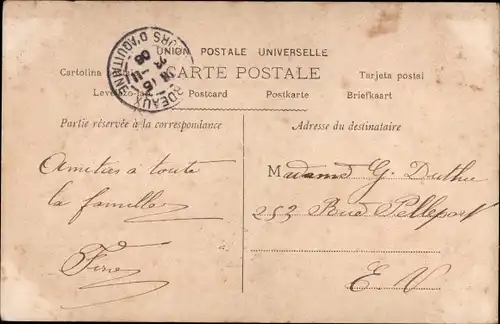 UNION POSTALE UNIVERSELLE
CARTE POSTALE
Cartolina Tarjeta postal
Postcard Postkarte Briefkaart
BORDEAUX COURS D'AQUITAINE
Partie réservée à la correspondance
Adresse du destinataire
Amitiés à toute
la famille
Madame G. Duthu
252 Rue Pelleport
E. V